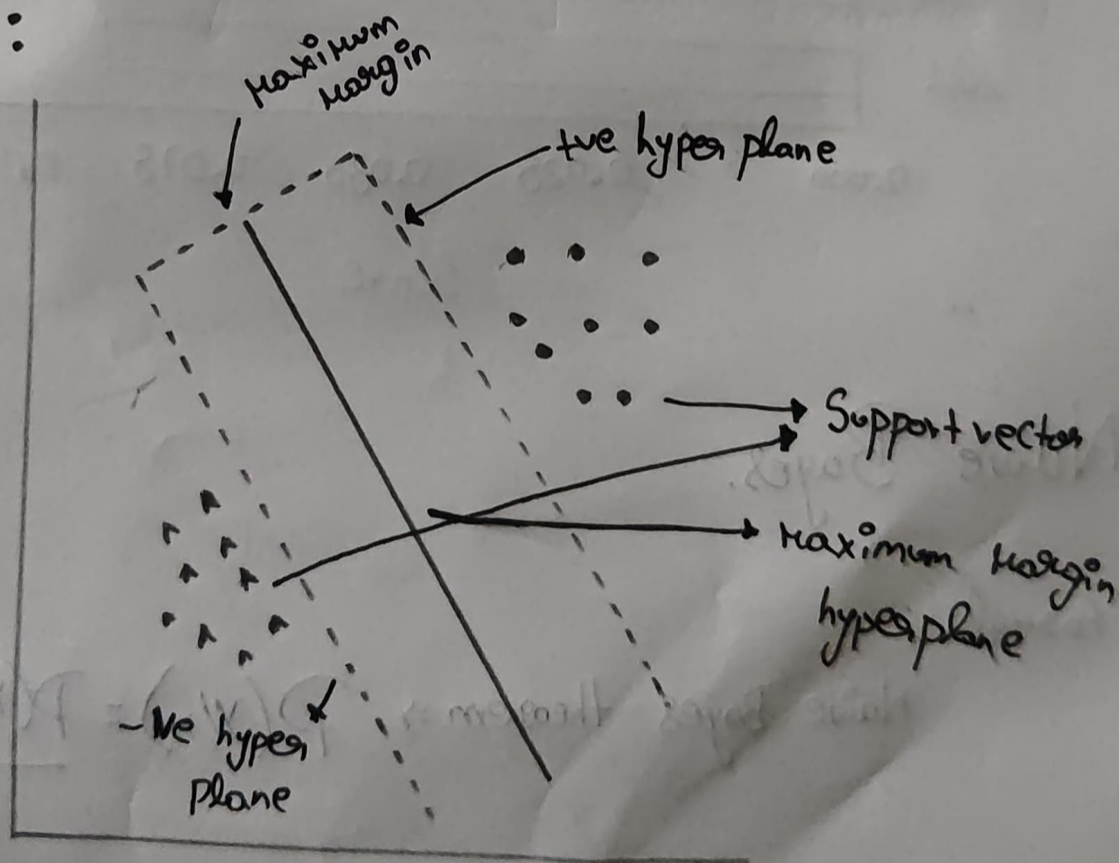 :
Maximum
Margin
+ve hyper plane
Support vector
Maximum Margin
hyperplane
-Ve hyper
plane